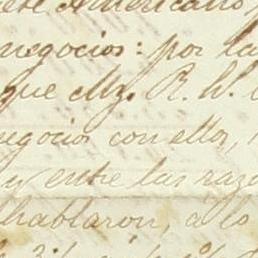 Americano,
negocios: por la
que Mr. R. W.
negocio con ellos,
y entre las razo
hablaron, a lo